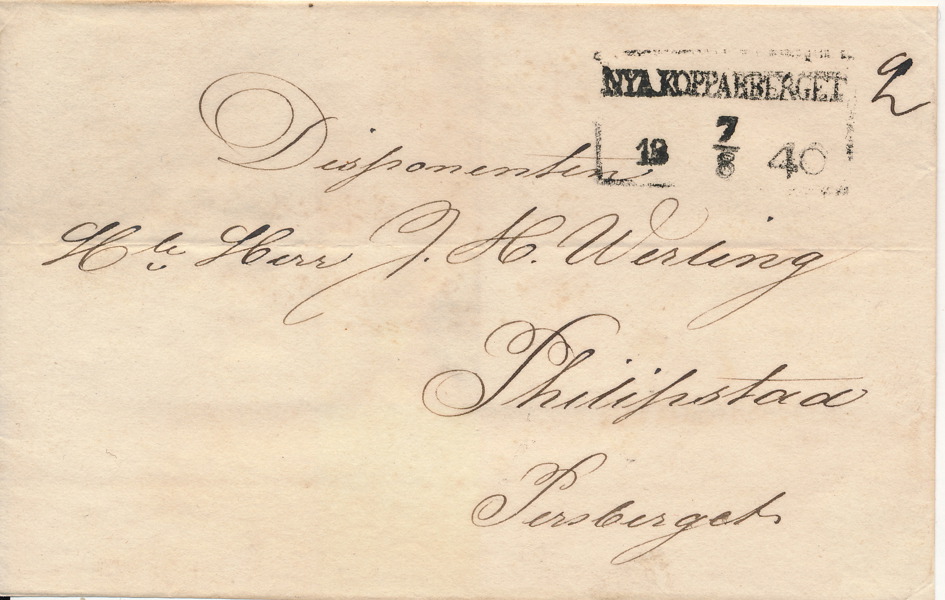 NYA KOPPARBERGET
18 7/8 40
2
Disponenten
H le Herr J. H. Werling
Philipstad
Persberget